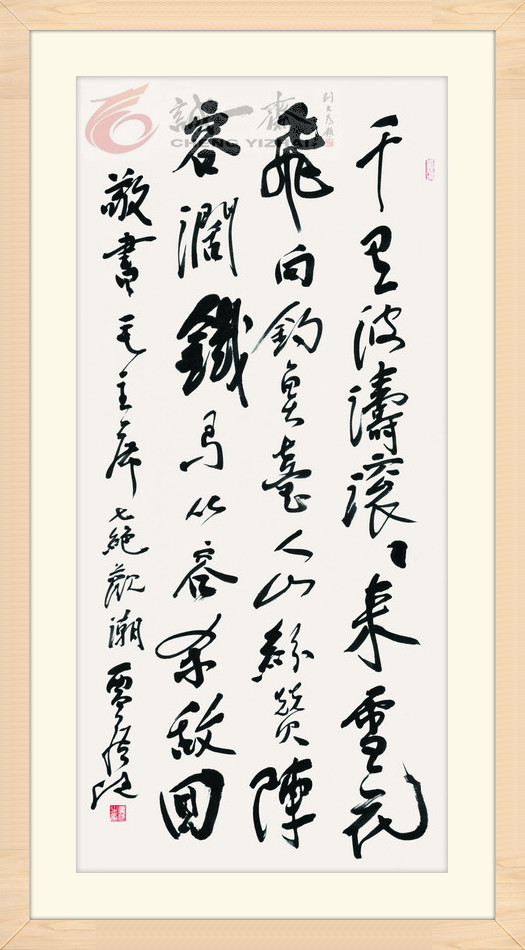 千里波濤滾滾来雪花
飛向釣魚臺人山紛贊陣
容濶鐵馬从容杀敌回
敬書毛主席七絕觀潮
誠一齋
CHENG YIZHAI